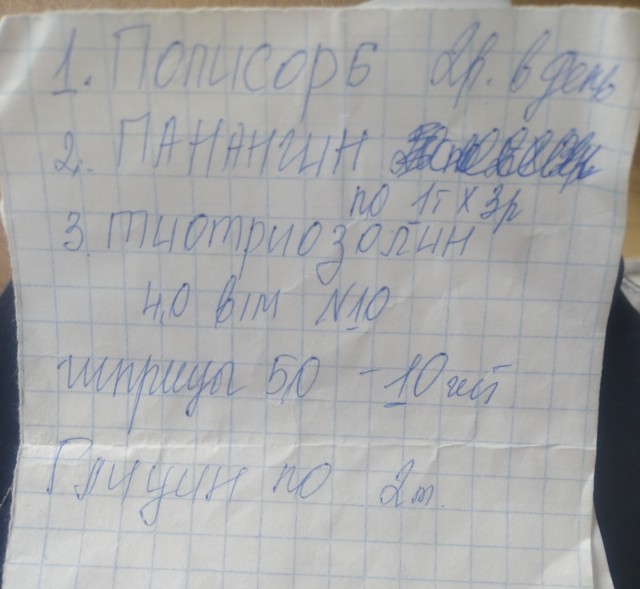 1. Полисорб 2р. в день
2. ПАНАНГИН
по 1т х 3р
3. тиотриозолин
4,0 в/м N10
шприцы 5,0 - 10 шт
Глицин по 2т.